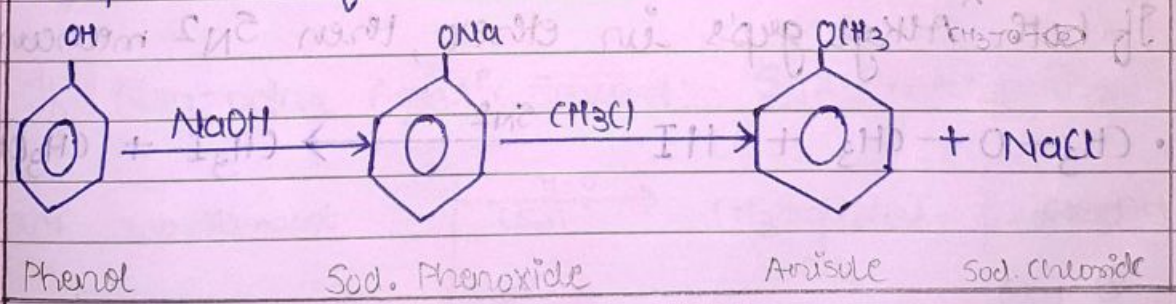 OH ONa OCH3
NaOH CH3Cl + NaCl
Phenol Sod. Phenoxide Anisole Sod. Chloride